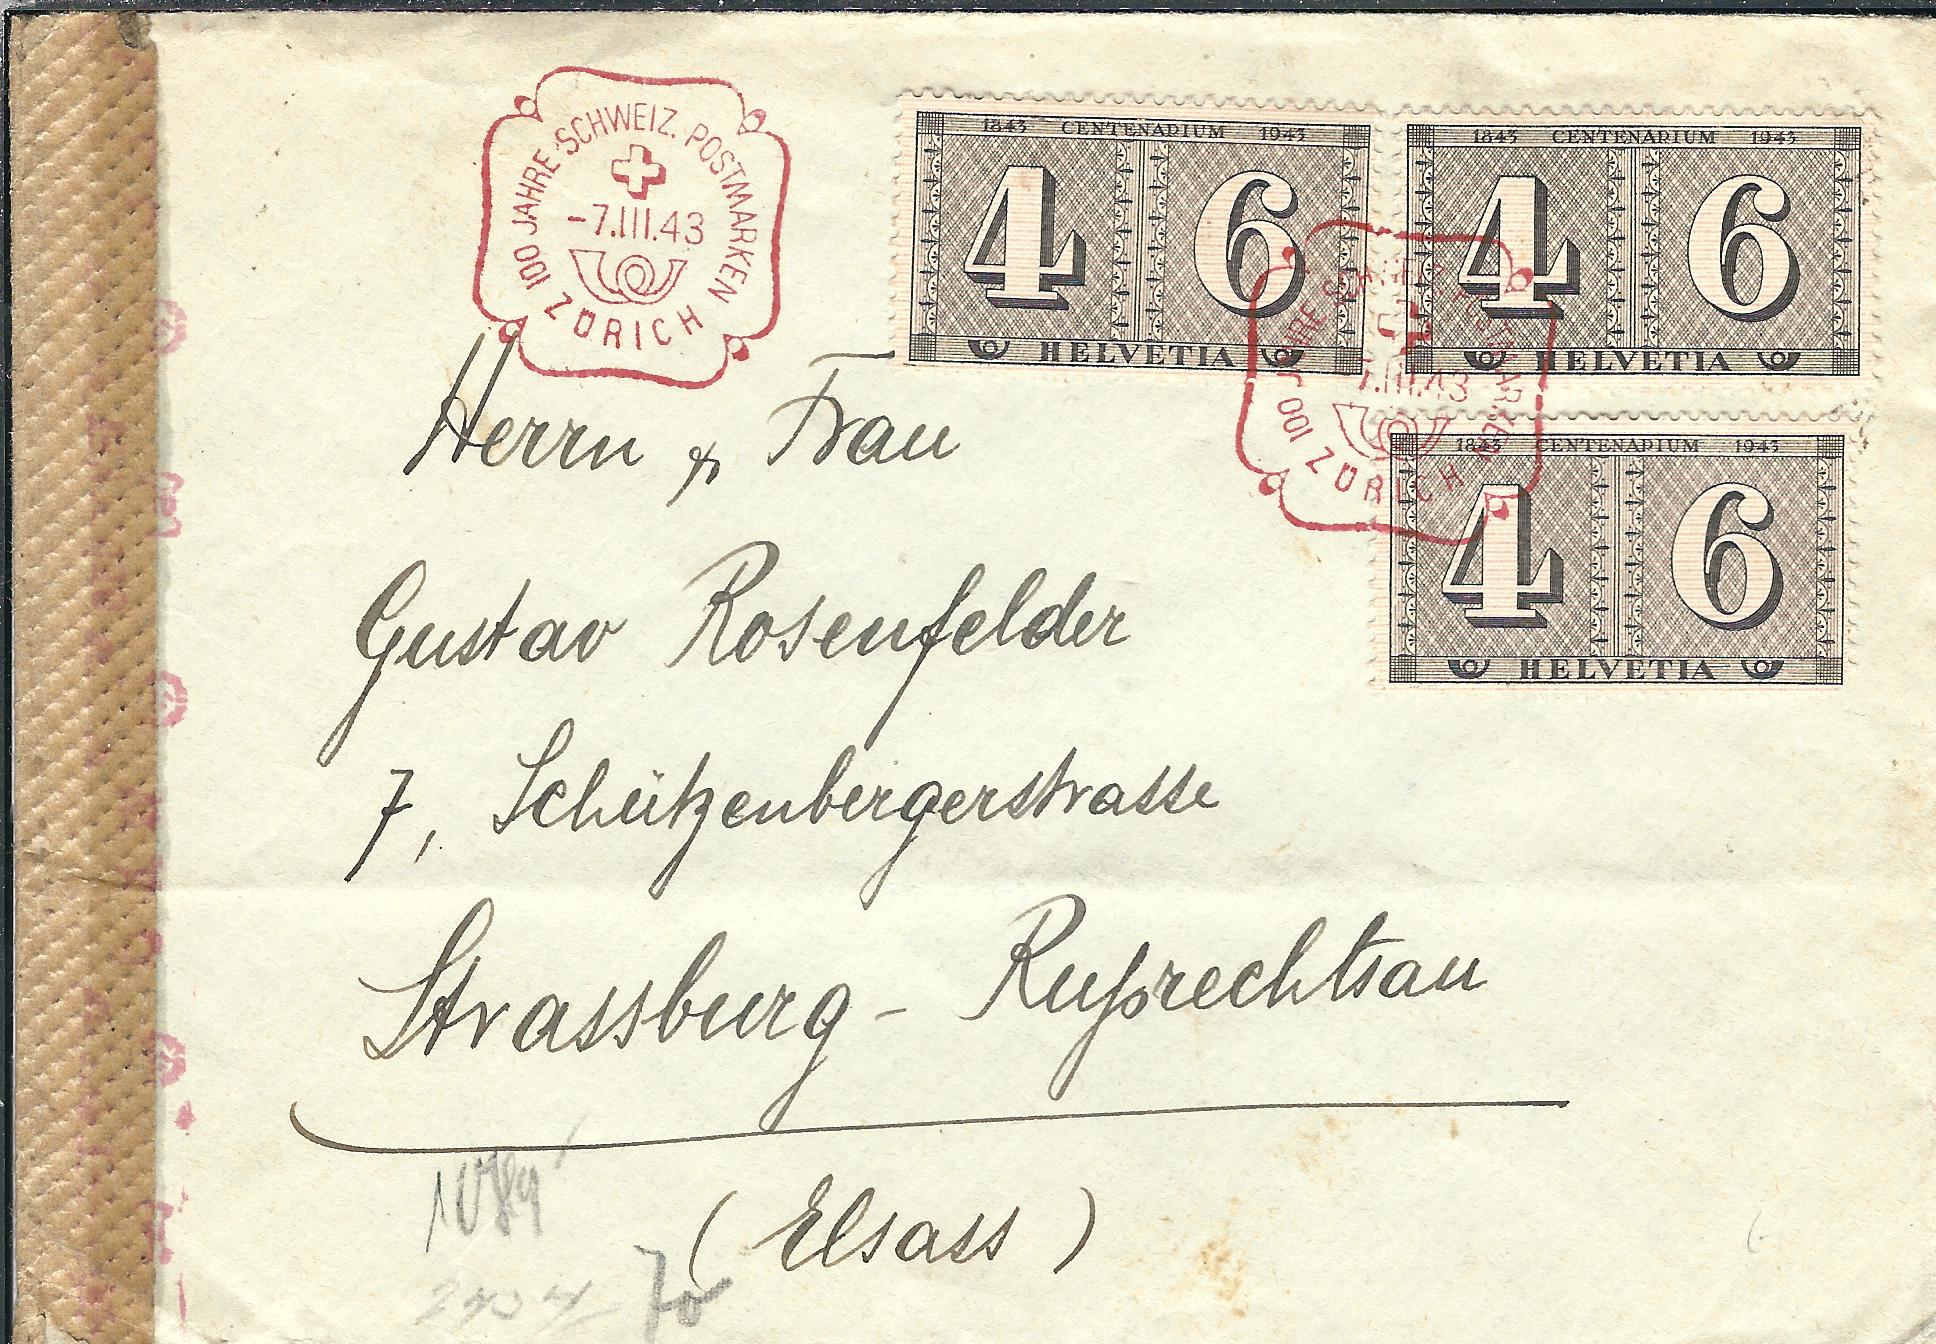 100 JAHRE SCHWEIZ. POSTMARKEN
-7.III.43
ZÜRICH
1843 CENTENARIUM 1943
4 6
HELVETIA
1843 CENTENARIUM 1943
4 6
HELVETIA
100 JAHRE POSTMARKEN
7.III.43
ZÜRICH
1843 CENTENARIUM 1943
4 6
HELVETIA
Herrn & Frau
Gustav Rosenfelder
7, Schützenbergerstrasse
Strassburg - Ruprechtsau
(Elsass)